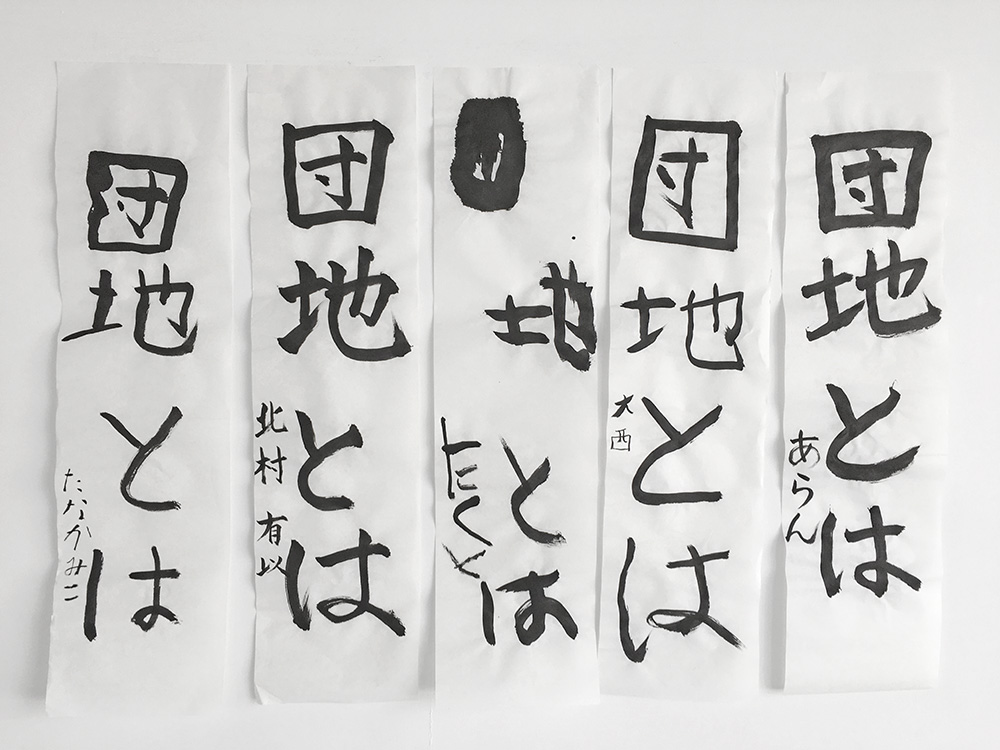 団地とは
あらん
団地とは
大西
団地とは
たくと
団地とは
北村 有以
団地とは
たなかみこ